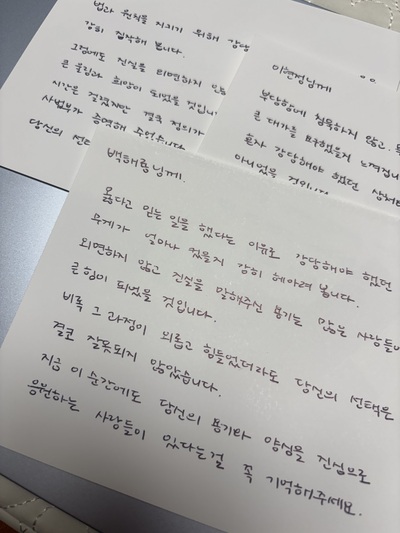 법과 원칙을 지키기 위해 감당
감히 짐작해 봅니다.
그럼에도 진실을 외면하지 않
큰 울림과 희망이 되었을 것입니
시간은 걸렸지만 결국 정의가
사법부가 증명해 주었습니다
당신의 선택
이현정님께
부당함에 침묵하지 않고
큰 대가를 요구했을지 느껴집니
혼자 감당해야 했던 상처
아니었을 것입니
백해룡님께.
옳다고 믿는 일을 했다는 이유로 감당해야 했던
무게가 얼마나 컸을지 감히 헤아려 봅니다.
외면하지 않고 진실을 말해주신 용기는 많은 사람들에
큰 힘이 되었을 것입니다.
비록 그 과정이 외롭고 힘들었더라도 당신의 선택은
결코 잘못되지 않았습니다.
지금 이 순간에도 당신의 용기와 양심을 진심으로
응원하는 사람들이 있다는걸 꼭 기억해주세요.